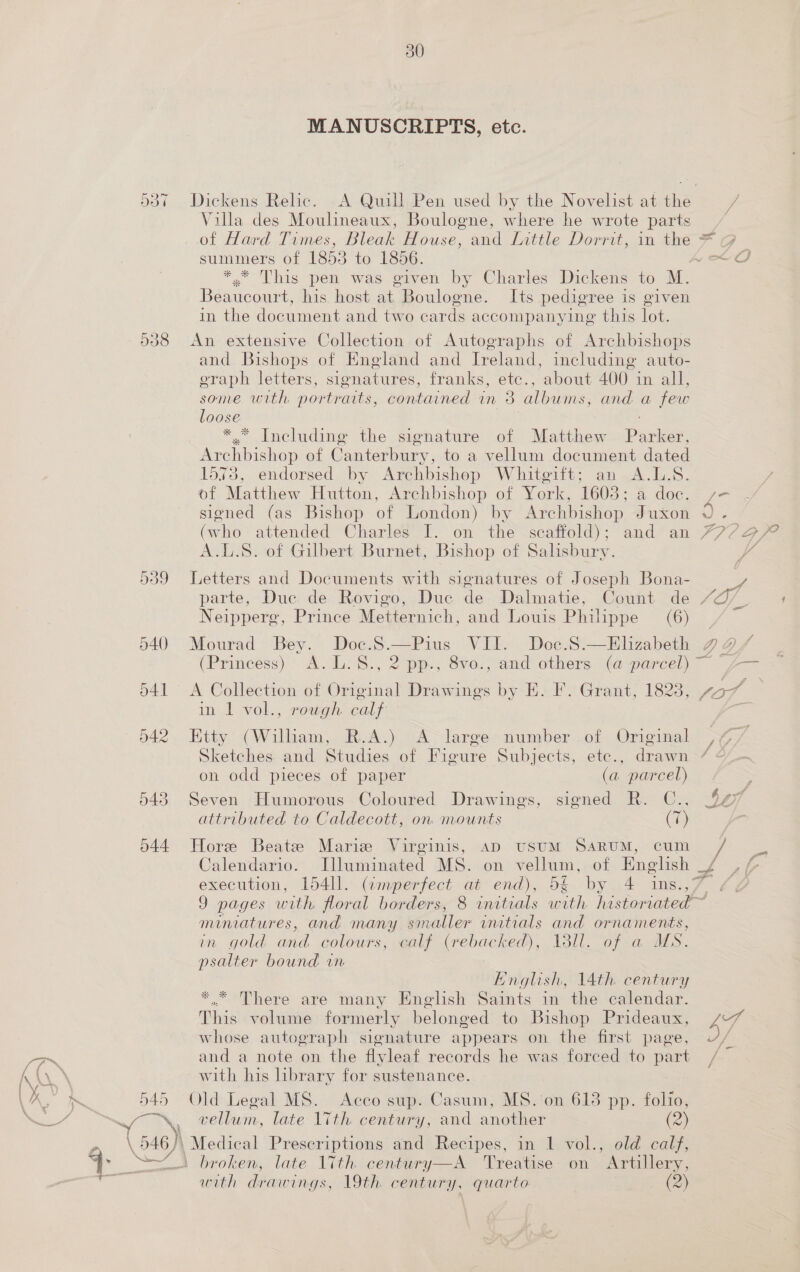 30
MANUSCRIPTS, etc.
537 Dickens Relic. A Quill Pen used by the Novelist at the
Villa des Moulineaux, Boulogne, where he wrote parts
of Hard Times, Bleak House, and Little Dorrit, in the
summers of 1853 to 1856.
*** This pen was given by Charles Dickens to M.
Beaucourt, his host at Boulogne. Its pedigree is given
in the document and two cards accompanying this lot.
538 An extensive Collection of Autographs of Archbishops
and Bishops of England and Ireland, including auto-
graph letters, signatures, franks, etc., about 400 in all,
some with portraits, contained in 3 albums, and a few
loose
*** Including the signature of Matthew Parker,
Archbishop of Canterbury, to a vellum document dated
1573, endorsed by Archbishop Whitgift; an A.L.S.
of Matthew Hutton, Archbishop of York, 1603; a doc.
signed (as Bishop of London) by Archbishop Juxon
(who attended Charles I. on the scaffold); and an
A.L.S. of Gilbert Burnet, Bishop of Salisbury.
539 Letters and Documents with signatures of Joseph Bona-
parte, Duc de Rovigo, Duc de Dalmatie, Count de
Neipperg, Prince Metternich, and Louis Philippe (6)
540 Mourad Bey. Doc.S.—Pius VII. Doc.S.—Elizabeth
(Princess) A. L. S., 2 pp., 8vo., and others (a parcel)
541 A Collection of Original Drawings by E. F. Grant, 1823,
in 1 vol., rough calf
542 Etty (William, R.A.) A large number of Original
Sketches and Studies of Figure Subjects, etc., drawn
on odd pieces of paper (a parcel)
543 Seven Humorous Coloured Drawings, signed R. C.,
attributed to Caldecott, on mounts (7)
544 Horæ Beatæ Mariæ Virginis, AD USUM SARUM, cum
Calendario. Illuminated MS. on vellum, of English
execution, 154ll. (imperfect at end), 5¾ by 4 ins.,
9 pages with floral borders, 8 initials with historiated
miniatures, and many smaller initials and ornaments,
in gold and colours, calf (rebacked), 13ll. of a MS.
psalter bound in
English, 14th century
*** There are many English Saints in the calendar.
This volume formerly belonged to Bishop Prideaux,
whose autograph signature appears on the first page,
and a note on the flyleaf records he was forced to part
with his library for sustenance.
545 Old Legal MS. Acco sup. Casum, MS. on 613 pp. folio,
vellum, late 17th century, and another (2)
546 Medical Prescriptions and Recipes, in 1 vol., old calf,
broken, late 17th century—A Treatise on Artillery,
with drawings, 19th century, quarto (2)